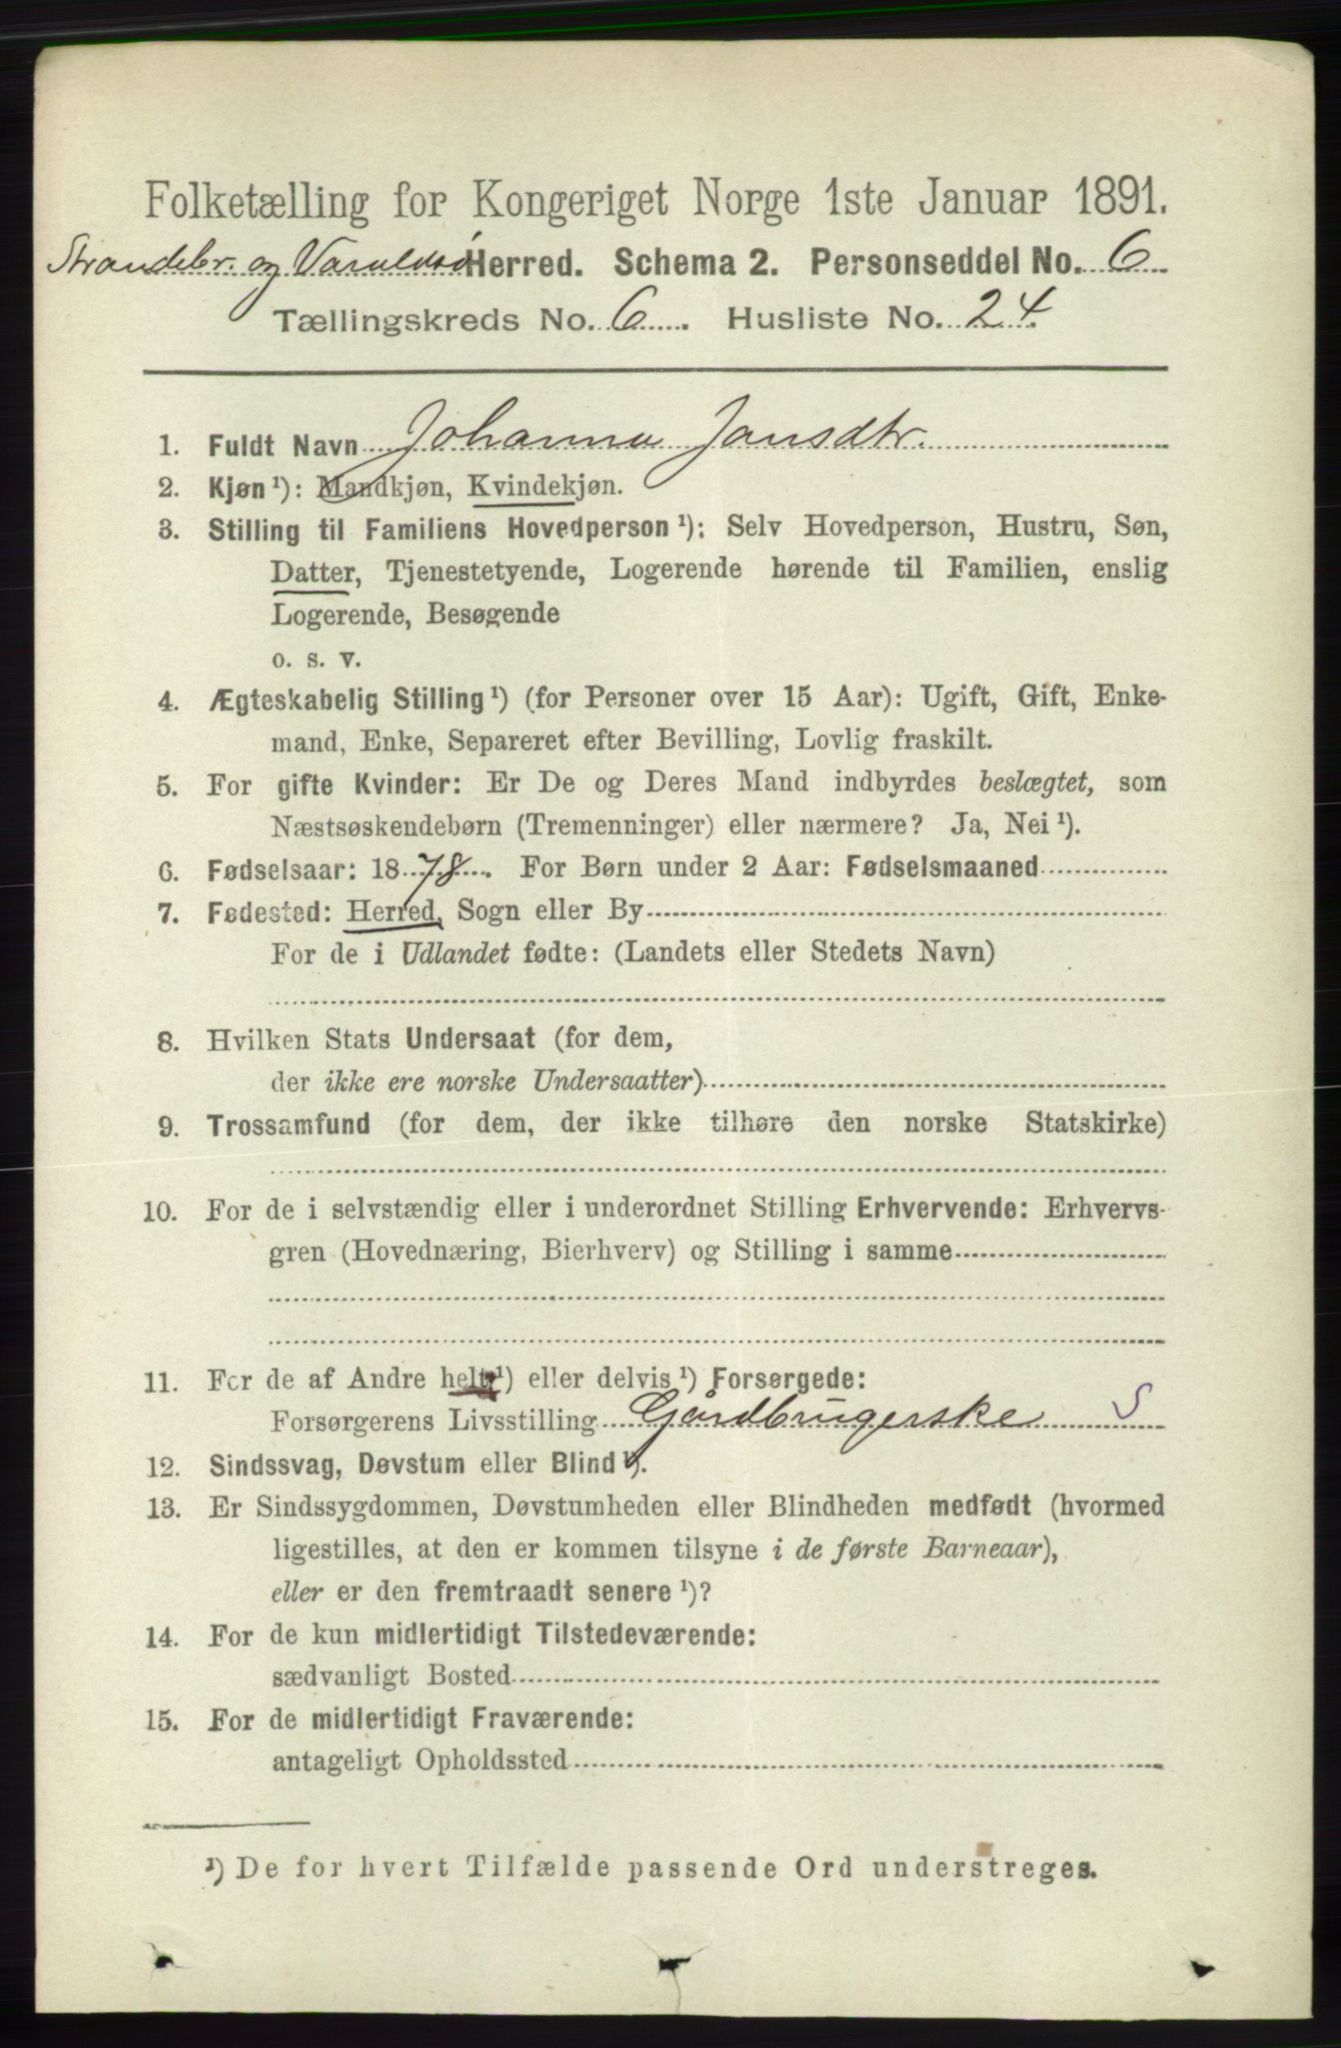 Folketælling for Kongeriget Norge 1ste Januar 1891.
Strandebr. og Varaldsø Herred. Schema 2. Personseddel No. 6
Tællingskreds No. 6. Husliste No. 24
1. Fuldt Navn Johanna Jansdtr.
2. Kjøn ¹): Mandkjøn, Kvindekjøn.
3. Stilling til Familiens Hovedperson ¹): Selv Hovedperson, Hustru, Søn,
Datter, Tjenestetyende, Logerende hørende til Familien, enslig
Logerende, Besøgende
o. s. v.
4. Ægteskabelig Stilling ¹) (for Personer over 15 Aar): Ugift, Gift, Enke-
mand, Enke, Separeret efter Bevilling, Lovlig fraskilt.
5. For gifte Kvinder: Er De og Deres Mand indbyrdes beslægtet, som
Næstsøskendebørn (Tremenninger) eller nærmere? Ja, Nei ¹).
6. Fødselsaar: 1878. For Børn under 2 Aar: Fødselsmaaned
7. Fødested: Herred, Sogn eller By
For de i Udlandet fødte: (Landets eller Stedets Navn)
8. Hvilken Stats Undersaat (for dem,
der ikke ere norske Undersaatter)
9. Trossamfund (for dem, der ikke tilhøre den norske Statskirke)
10. For de i selvstændig eller i underordnet Stilling Erhvervende: Erhvervs-
gren (Hovednæring, Bierhverv) og Stilling i samme
11. For de af Andre helt ¹) eller delvis ¹) Forsørgede:
Forsørgerens Livsstilling Gårdbrugerske S
12. Sindssvag, Døvstum eller Blind ¹).
13. Er Sindssygdommen, Døvstumheden eller Blindheden medfødt (hvormed
ligestilles, at den er kommen tilsyne i de første Barneaar),
eller er den fremtraadt senere ¹)?
14. For de kun midlertidigt Tilstedeværende:
sædvanligt Bosted
15. For de midlertidigt Fraværende:
antageligt Opholdssted
¹) De for hvert Tilfælde passende Ord understreges.